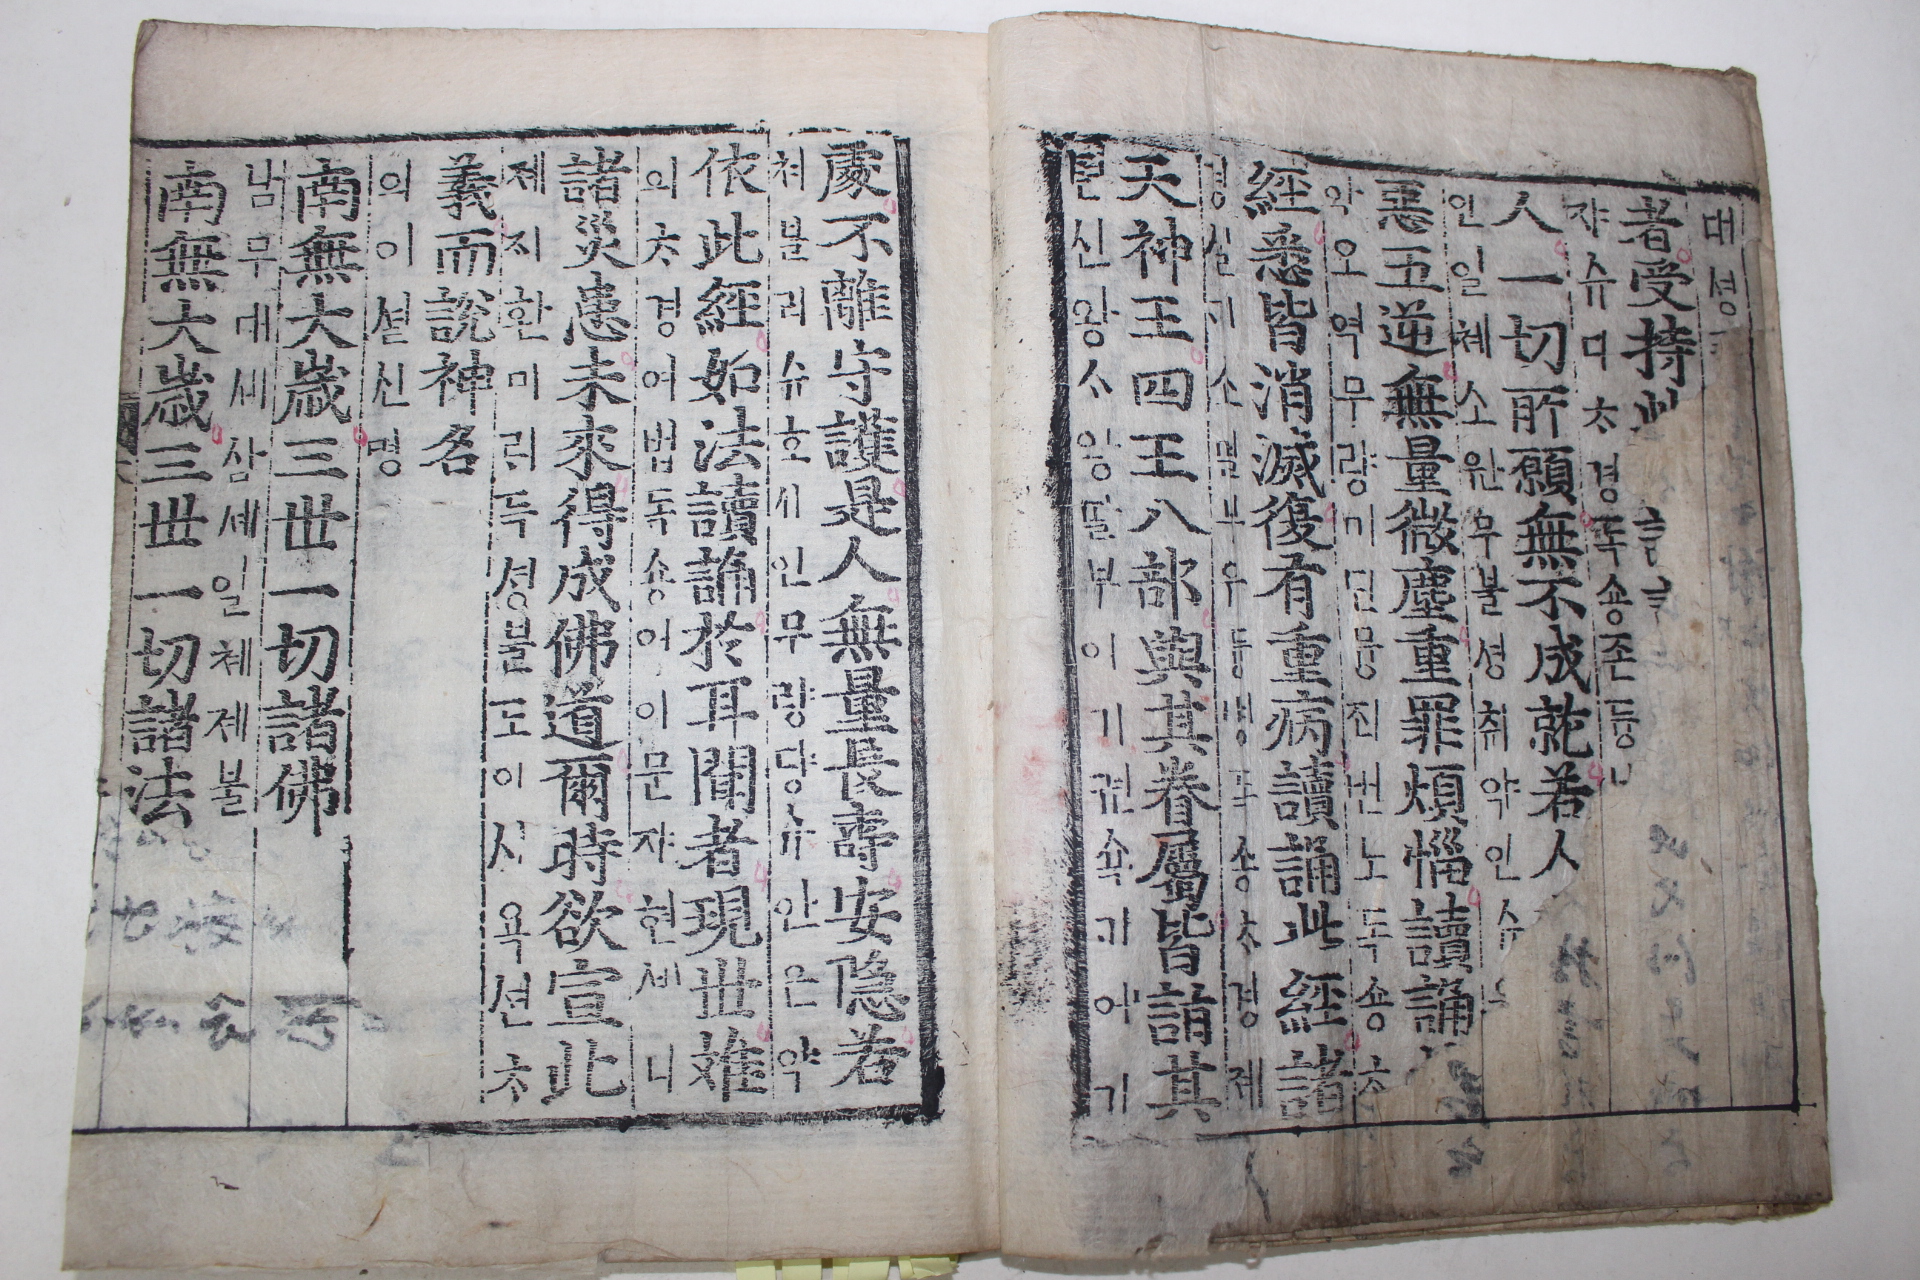 대셩
者受持此
쟈슈디ᄎᆞ경독숑존듕
人一切所願無不成就若人
인일쳬소원무불셩취약인슈
惡五逆無量微塵重罪煩惱讀誦
악오역무량미딘듕죄번노독숑ᄎᆞ
經悉皆消滅復有重病讀誦此經諸
경실ᄀᆡ소멸부우듕병도숑ᄎᆞ경졔
天神王四王八部與其眷屬皆詣其
텬신왕ᄉᆞ왕팔부이기권쇽ᄀᆡ아기
處不離守護是人無量長壽安隱若
쳐불리슈호시인무량댱슈안은약
依此經如法讀誦於耳聞者現世難
의ᄎᆞ경여법독숑어이문쟈현셰니
諸災患未來得成佛道爾時欲宣此
졔ᄌᆡ환미ᄅᆡ두셩불도이시욕션ᄎᆞ
義而說神名
의이셜신명
南無大歲三世一切諸佛
남무대셰삼셰일쳬졔불
南無大歲三世一切諸法